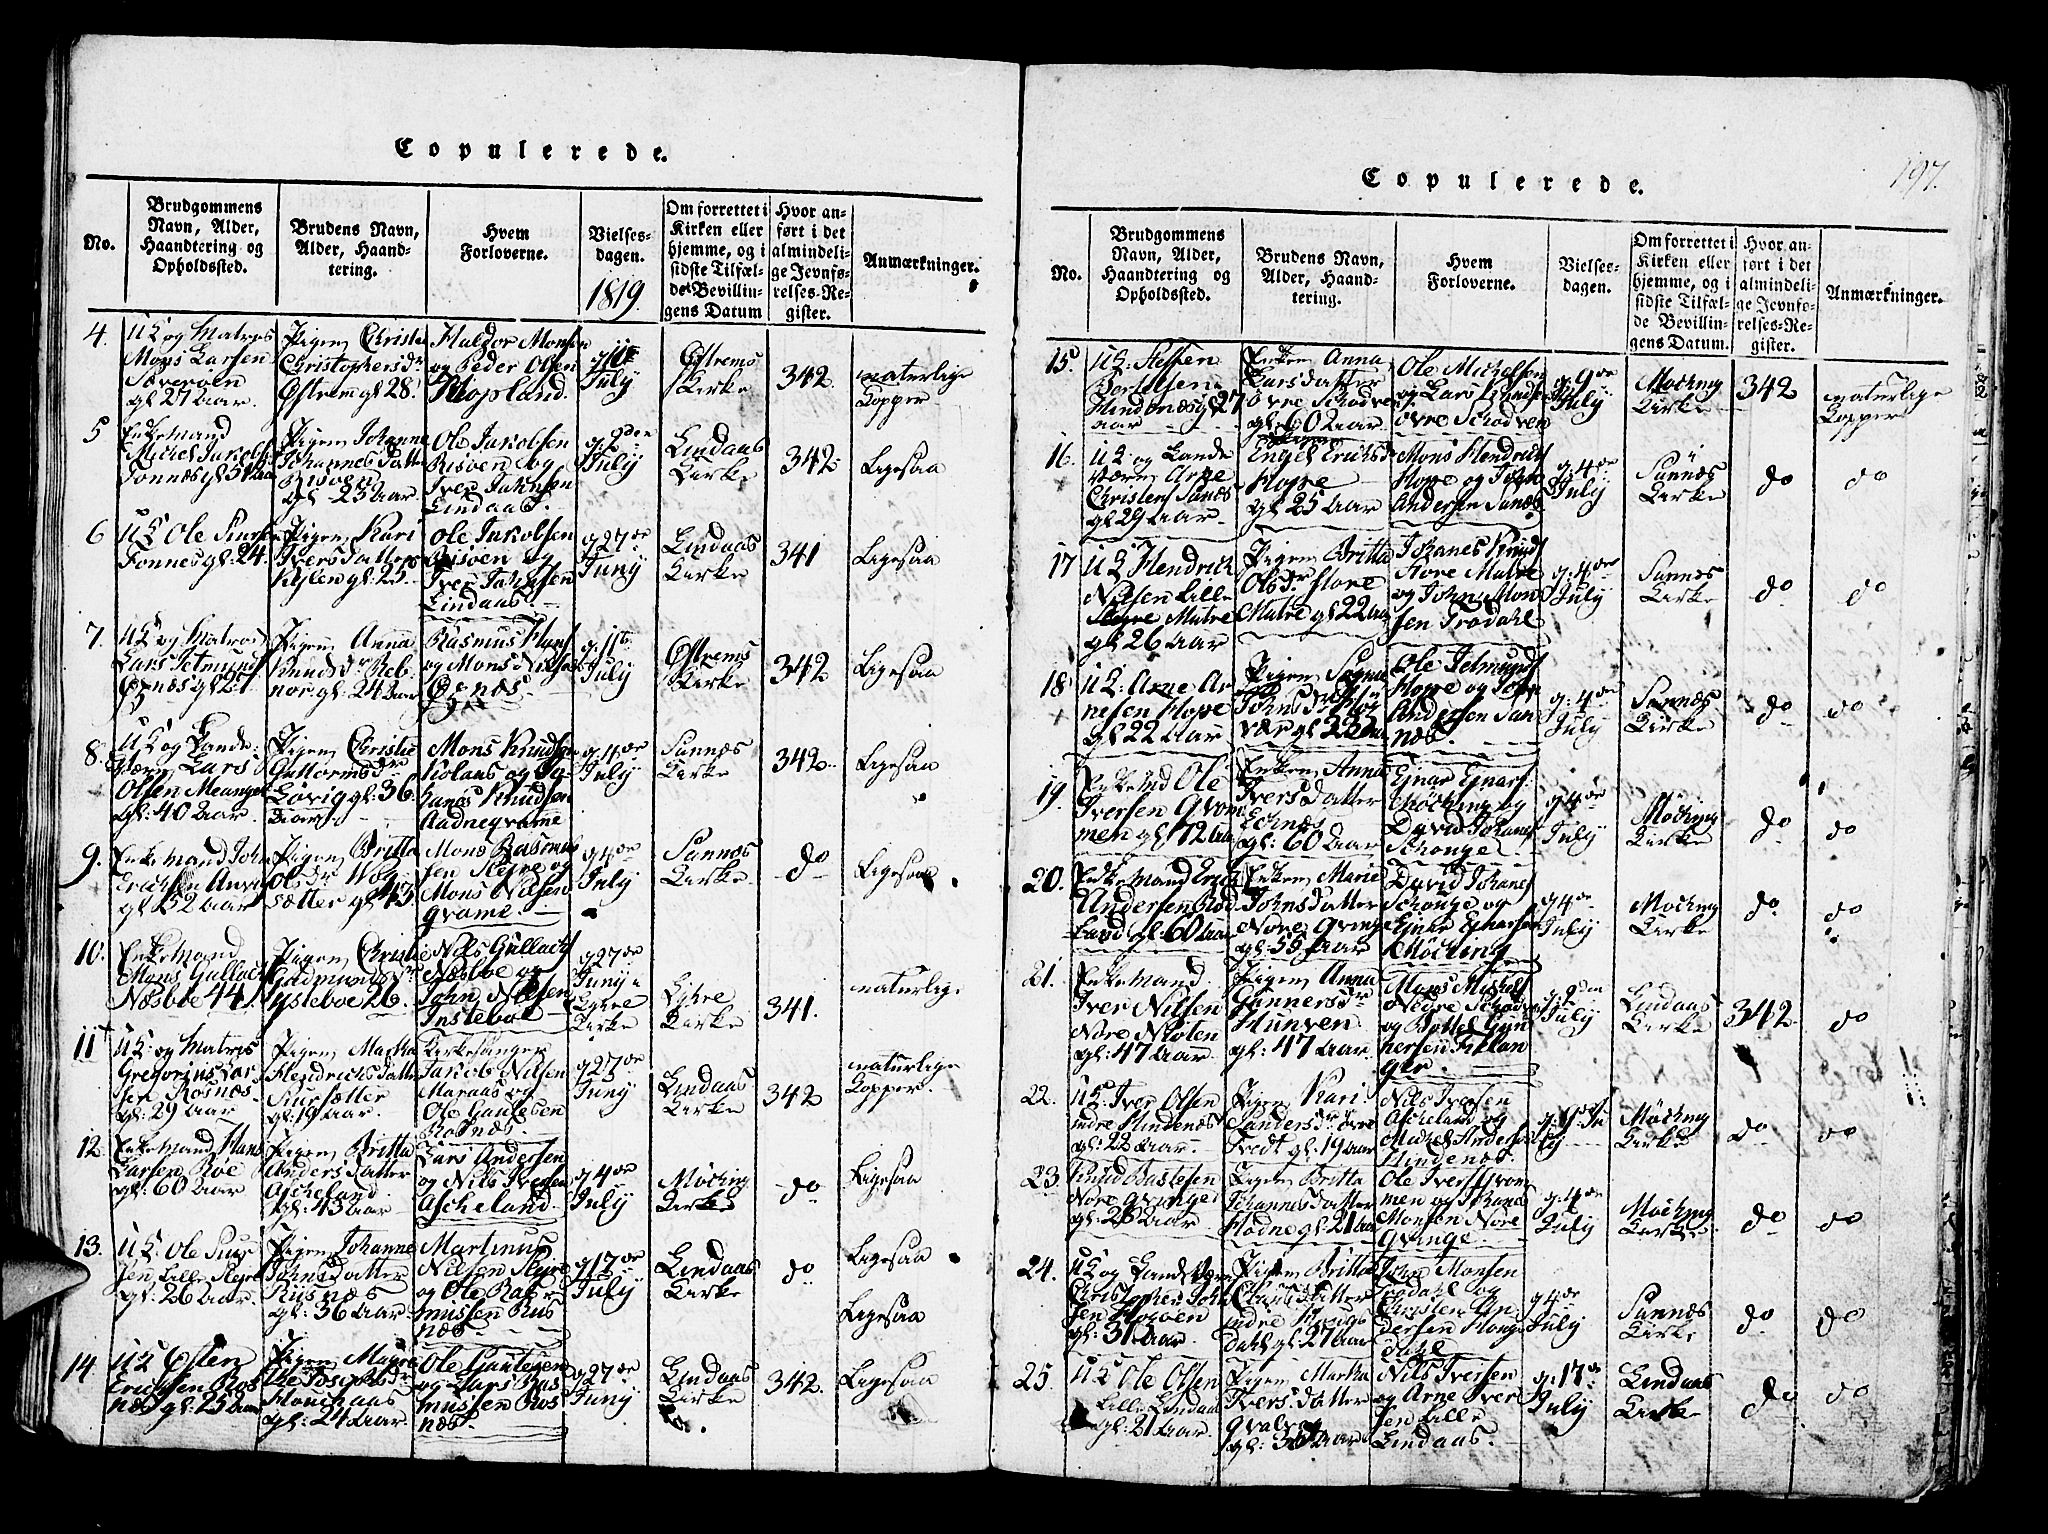 Copulerede.
No.
Brudgommens Navn, Alder, Haandtering og Opholdssted.
Brudens Navn, Alder, Haandtering.
Hvem Forloverne.
Vielsesdagen.
1819.
Om forrettet i Kirken eller hjemme, og i sidste Tilfælde Bevillingens Datum
Hvor anført i det almindelige Jevnførelses-Register.
Anmærkninger.
4.
UK og Matros
Mons Larsen
Sæverven
gl 27 Aar.
Pigen Christie
Christophersdr
Østrem gl 28.
Haldor Monsen
og Peder Olsen
Hopland.
July
Ostrems
Kirke
342.
naturlige
Kopper
5
Enkemand
Michel Jakobs
Fonnæs gl 51 Aar
Pigen Johanne
Johannes Datter
Risven
gl 25 Aar.
Ole Jakobsen
Risven og
Iver Johnsen
Lindaas.
July
Lindaas
Kirke
342.
Ligesaa
6
UK Ole
Fonnes gl: 24.
Pigen Kari
Iversdatter
Kylen gl: 25.
Ole Jakobsen
Risven og
Iver Johnsen
Lindaas.
d 27de
Juny
Lindaas
Kirke
341
Ligesaa
7.
UK og Matros
Lars Jetmunds
gl 27.
Pigen Anna
Knudsdr Reb
nor gl: 24 Aar
Rasmus Hans
og Mons Nilsen
July
Ostrems
Kirke
342
Ligesaa
8.
UK og Lande:
værn Lars
Olsen Meanger
gl: 40 Aar.
Pigen Christie
Guttormsdr
Løvig gl: 36
Aar
Mons Knudsen
Kolaas og
Knudsen
Aadnegvame
d 4de
July
Sannæs
Kirke
342.
Ligesaa
9.
Enkemand John
Erichsen
gl 52 Aar
Pigen Britta
Olsdr
sætter gl 43
Mons Rasmus
sen Slejre og
Mons Nilsen
Gvame.
d 4de
July
Sannæs
Kirke
do
Ligesaa
10.
Enkemand
Mons Gullach
Næsbøe 44.
Pigen Christie
Gudmundsdr
Ystebøe 26
Nils Gullach
Næsbøe og
John Nilsen
Instebøe
d 27de
Juny i
Lygre
Kirke
Lygre
Kirke
341.
naturlige
11
UK og Matros
Gregorius Lar
sen Rosnæs.
gl: 29 Aar
Pigen Marta
Hendrichsdatter
Kursætter
gl: 19 Aar.
Kirkesanger
Jakob Nilsen
Maraas og
Ole Gautesen
Rosnæs
d 27de
Juny
Lindaas
Kirke
342
naturlige
Kopper.
12
Enkemand Hans
Larsen Roe
gl: 60 Aar
Pigen Britta
Andersdatter
Ascheland
gl: 43 Aar
Lars Andersen
og Nils Iversen
Ascheland
d 4de
July
Møching
Kirke
do
Ligesaa
13.
UK: Ole
sen Lille Slejre
gl: 26 Aar.
Pigen Johanne
Johnsdatter
Risnæs
gl: 36 Aar
Martinus
Nilsen Slejre
og Ole Ras
mussen Ris
næs
d 17de
July
Lindaas
Kirke
do
Ligesaa
Ligesaa
14
UK Osten
Erichsen Ros
næs gl: 25 Aar
Pigen
Josephsdr
Mouchaas
gl: 24 Aar
Ole Gautesen
og Lars Ras
mussen Ros
næs.
d 27de
Juny
Lindaas
Kirke
342
Ligesaa
Copulerede.
197.
No.
Brudgommens Navn, Alder, Haandtering og Opholdssted.
Brudens Navn, Alder, Haandtering.
Hvem Forloverne.
Vielsesdagen.
Om forrettet i Kirken eller hjemme, og i sidste Tilfælde Bevillingens Datum.
Hvor anført i det almindelige Jevnførelses-Register.
Anmærkninger.
15.
UK: Steffen
Bertelsen
Hindenæs gl 27
Aar
Enken Anna
Larsdatter
Øvre Schodven
gl: 60 Aar.
Ole Michelsen
og Lars Knudsen
Øvre Schodven
d 9de
July
Møching
Kirke
342
naturlige
Kopper
16
UK og Lande
værn Arne
Christens Sanæs
gl 29 Aar
Engel Erichsdr
Hope
gl 25 Aar
Mons Hendrich
Hope og John
Andersen Sanæs
d: 4de
July
Sannæs
Kirke
do
do
17
UK Hendrich
Nilsen Lille
Matre
gl 26 Aar
Pigen Britta
Olsdr Store
Matre gl 22 Aar
Johanes Knuds
Store Matre
og John Mon
sen Trodahl
d: 4de
July
Sannæs
Kirke
do
do
18
UK: Arne Ar
nesen Hope
gl 22 Aar
Pigen
Johnsdr Høy
vær gl
Ole Jetmunds
Hope og John
Andersen San
næs.
d: 4de
July
Sannæs
Kirke
do
do
19
Enkemd Ole
Iversen Qvom
men gl 72 Aar
Enken Anna
Iversdatter
Echnæs
gl: 60 Aar
Ejnar Ejnars:
Møching og
David Johans
Schonge
d 4de
July
Møching
Kirke
do
do
20.
Enkemand Erich
Andersen Rød
land gl: 60 Aar
Enken Marie
Johnsdatter
Nore Qvinge
gl: 55 Aar
David Johans
Schonge og
Ejnar Ejnarsen
Møching
d 4de
July
Møching
Kirke
do
do
21.
Enkemand
Iver Nilsen
Nore Njøten
gl: 47 Aar.
Pigen Anna
Gunnersdr
Hunven
gl: 47 Aar.
Mons Michels
Nedre Schodven
og Bottel Gun
nersen Fiklan
ger.
July
Lindaas
Kirke
342.
do
22.
UK: Iver Olsen
indre Hindenæs
gl: 22 Aar.
Pigen Kari
Sandersdr øvre
Tvedt gl: 19 Aar
Nils Iversen
Ascheland og
Michel Anders
Hindenæs.
d: 9de Ju
ly
Møching
Kirke
do
do
23
Knud Bastesen
Nore Qvinge
gl: 26 Aar
Pigen Britta
Johannesdatter
Hodne gl: 21 Aar
Ole Ivers Qvom
men og Johanes
Monsen Nore
Qvinge.
d: 4de
July
Møching
Kirke
do
do
24.
UK og Landværn
Christopher John
sen Hopven
gl: 31 Aar.
Pigen Britta
Clausdatter
indre Hougs
dahl gl: 27 Aar
John Monsen
Trodahl og
Christen An
dersen Hougs
dahl
d 4de
July
Sannæs
Kirke
do
do
25.
UK Ole Olsen
Lille Lindaas
gl: 21 Aar.
Pigen Marta
Iversdatter
Qvalvog
Nils Iversen
og Arne Iver
sen Lille
Lindaas.
d: 17de
July
Lindaas
Kirke
do
do